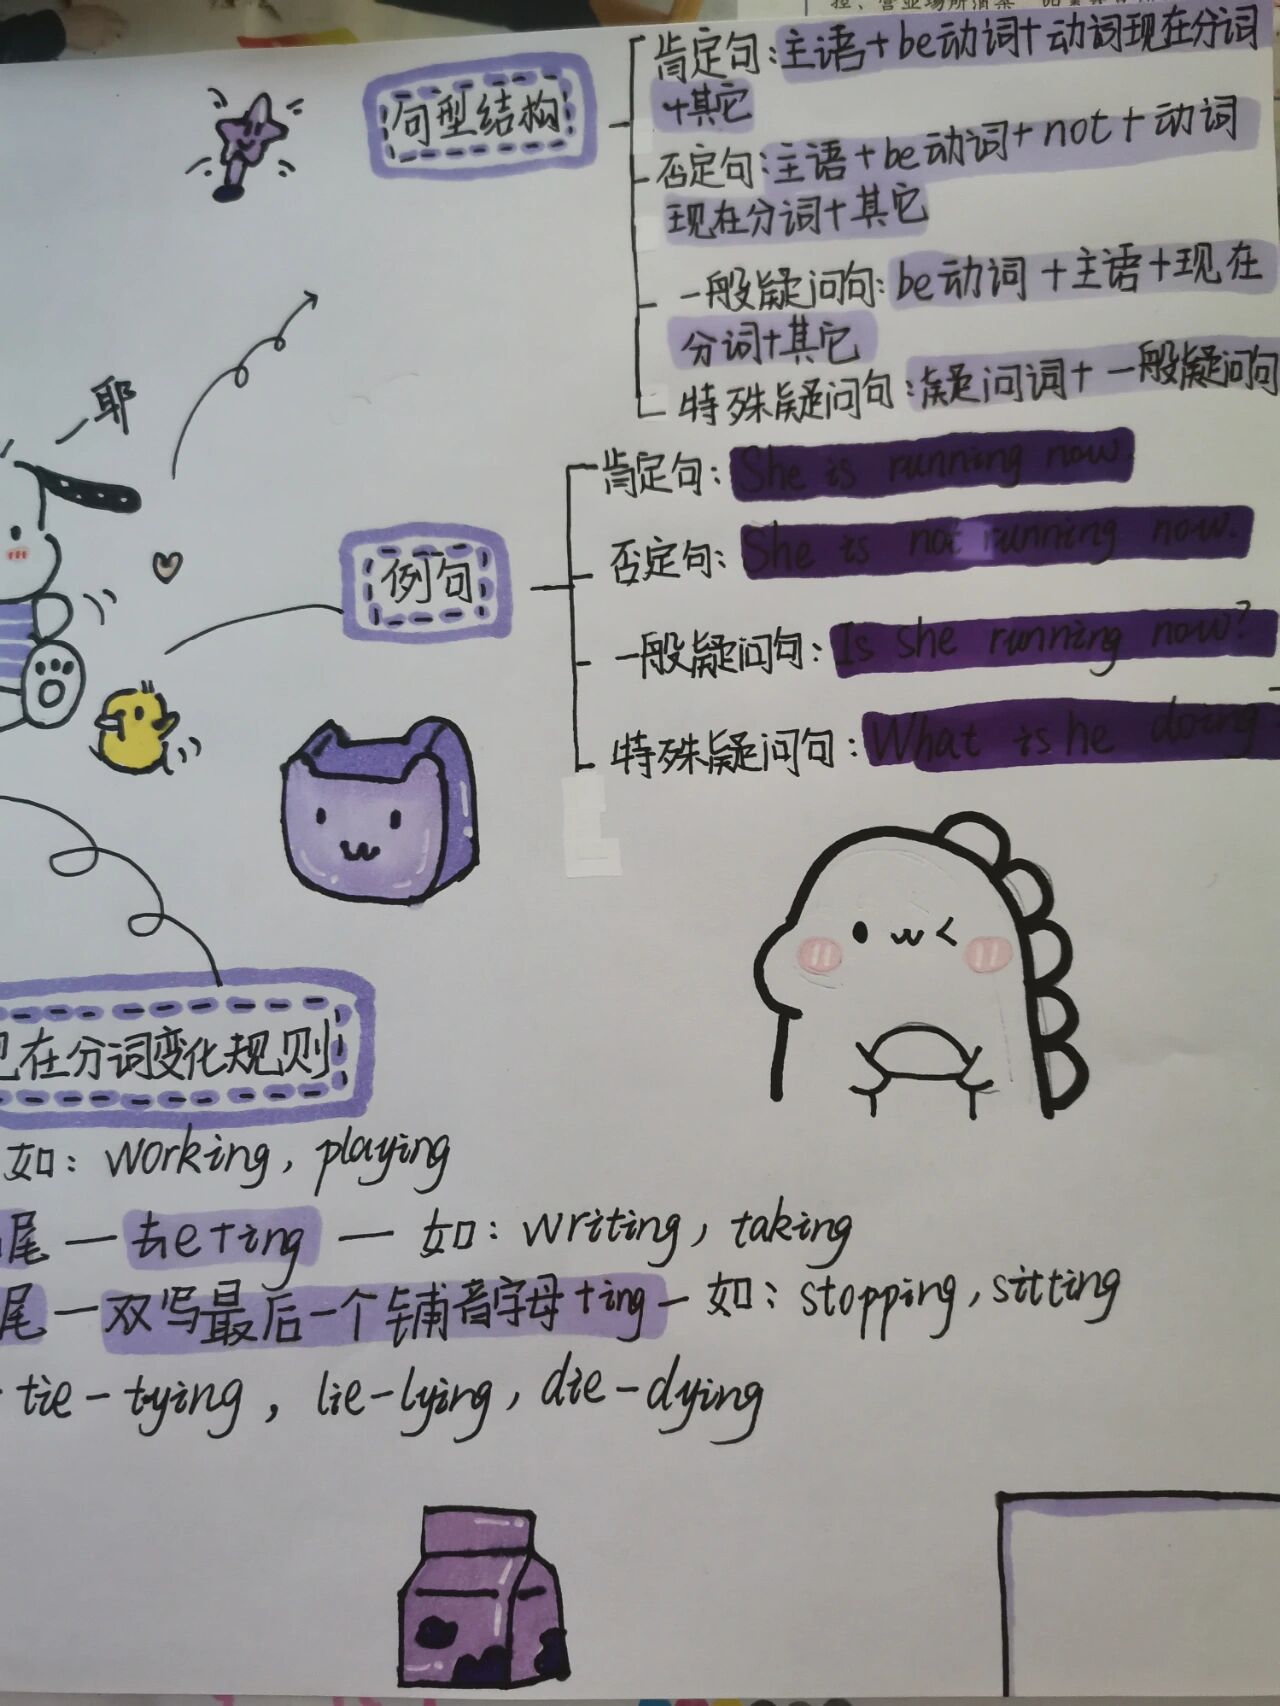 句型结构
肯定句:主语+be动词+动词现在分词
+其它
否定句:主语+be动词+not+动词
现在分词+其它
一般疑问句:be动词+主语+现在
分词+其它
特殊疑问句:疑问词+一般疑问句
耶
例句
肯定句:She is running now.
否定句:She is not running now.
一般疑问句:Is she running now?
特殊疑问句:What is he doing
在分词变化规则
如:working, playing
尾—去e+ing—如:writing, taking
尾—双写最后一个辅音字母+ing—如:stopping, sitting
tie-tying, lie-lying, die-dying